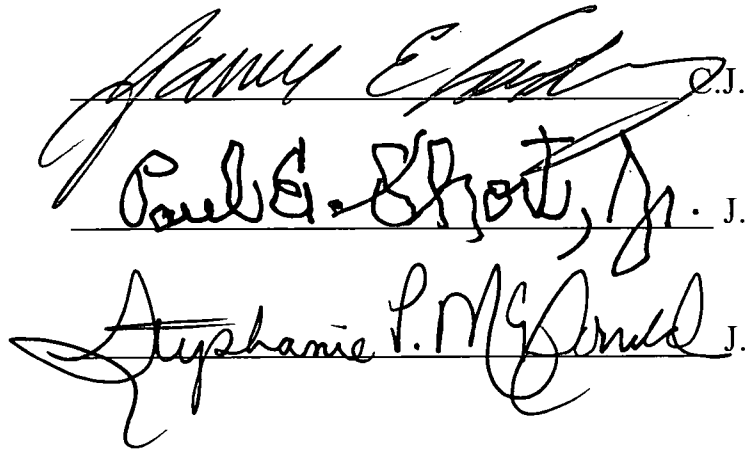 James E C.J.
Paul E. Short, Jr. J.
Stephanie P. McDonald J.